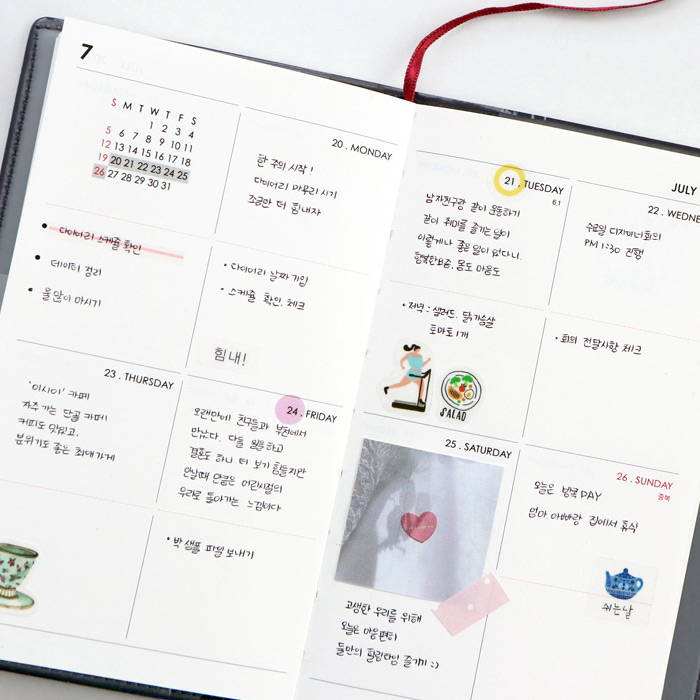 7
S M T W T F S
1 2 3 4
5 6 7 8 9 10 11
12 13 14 15 16 17 18
19 20 21 22 23 24 25
26 27 28 29 30 31
다이어리 스케줄 확인
데이터 정리
물 많이 마시기
20 . MONDAY
한 주의 시작!
다이어리 마무리 시기
조금만 더 힘내자
• 다이어리 날짜 기입
• 스케줄 확인. 체크
힘내!
23 . THURSDAY
'이시이' 카페
자주 가는 단골 카페!
커피도 맛있고.
분위기도 좋은 최애가게
24 . FRIDAY
오랜만에 친구들과 부천에서
만났다. 다들 일을 하고
결혼도 하니 더 보기 힘들지만
만날때 만큼은 어린시절의
우리로 돌아가는 느낌이다
• 박 샘플 파일 보내기
JULY
21 . TUESDAY
6.1
남자친구랑 같이 운동하기
같이 취미를 즐기는 일이
이렇게나 좋은 일이 없다니.
행복한요즘, 몸도 마음도
• 저녁 : 샐러드. 닭가슴살
토마토 1개
SALAD
22 . WEDNE
수요일 디자이너회의
PM 1:30 진행
• 회의 전달사항 체크
25 . SATURDAY
고생한 우리를 위해
오늘은 마음편히
둘만의 힐링타임 즐기기 :)
26 . SUNDAY
중복
오늘은 방콕 DAY
엄마 아빠랑 집에서 휴식
쉬는날